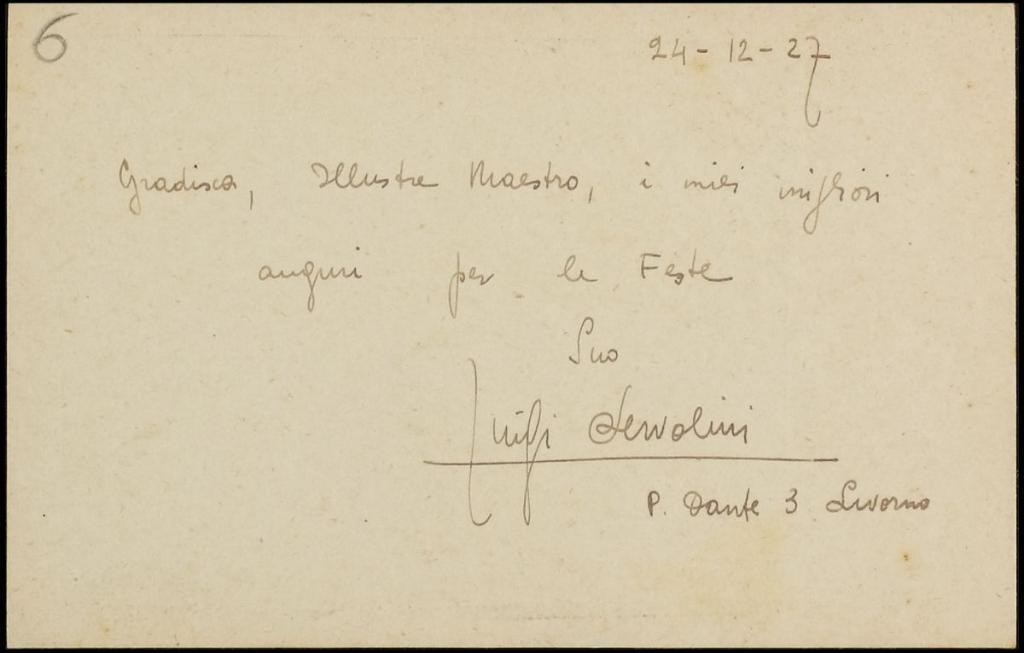 6
24-12-27
Gradisca, Illustre Maestro, i miei migliori
auguri per le Feste
Suo
Luigi Servolini
P. Dante 3 Livorno